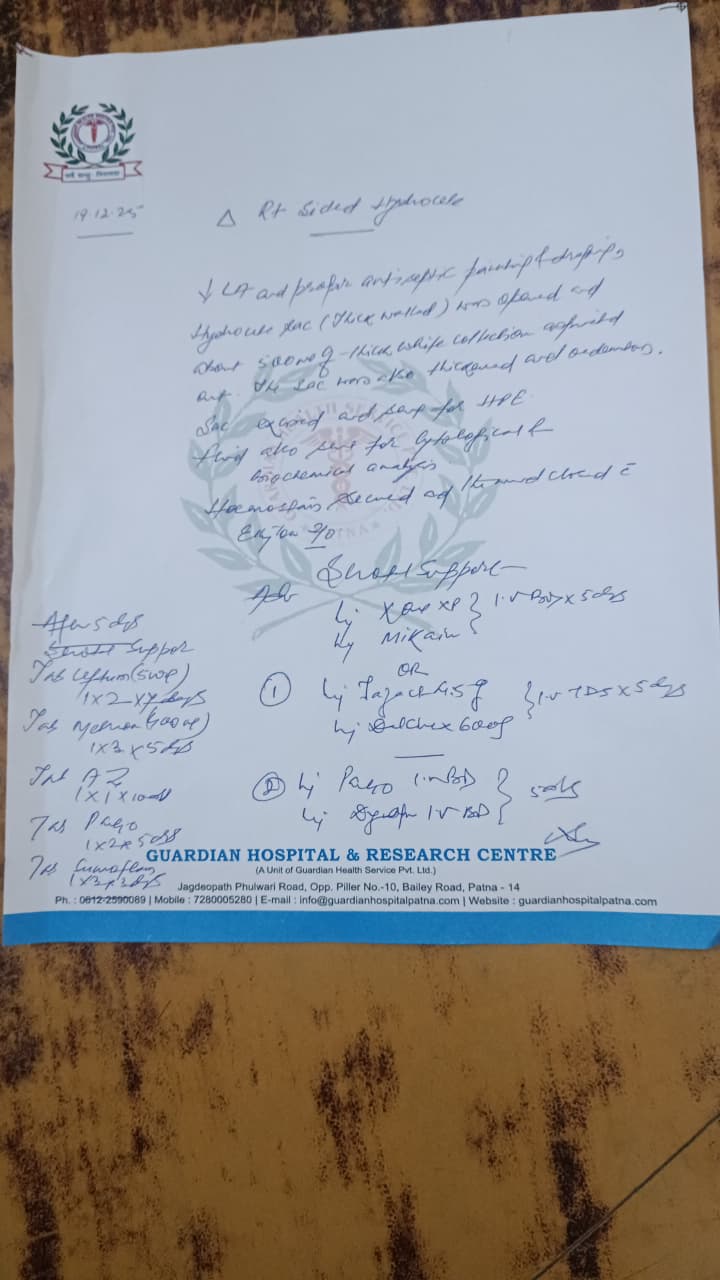 19.12.25
Δ Rt Sided Hydrocele
↓ LA and proper antiseptic painting & draping,
Hydrocele sac (Thick walled) was opened and
about 500ml of thick white collection aspirated
out. The sac was also thickened and oedematous.
Sac excised and sent for HPE.
fluid also sent for Cytological &
Biochemical analysis
Haemostasis secured and closed c̄
2/0
Adv Support
Inj XP } I.V BD x 5days
Inj Mikacin
OR
① Inj 4.5 g } I.V TDS x 5 days
Inj 600
② Inj Panto I.V BD } 5 days
Inj I.V BD
After 5 days
Support
Tab (500)
1x2x7 days
Tab (600)
1x3x5 days
Tab A Z
1x1x10 days
Tab Panto
1x2x5 days
Tab
1x3x3 days
GUARDIAN HOSPITAL & RESEARCH CENTRE
(A Unit of Guardian Health Service Pvt. Ltd.)
Jagdeopath Phulwari Road, Opp. Piller No.-10, Bailey Road, Patna - 14
Ph. : 0612-2590089 | Mobile : 7280005280 | E-mail : info@guardianhospitalpatna.com | Website : guardianhospitalpatna.com